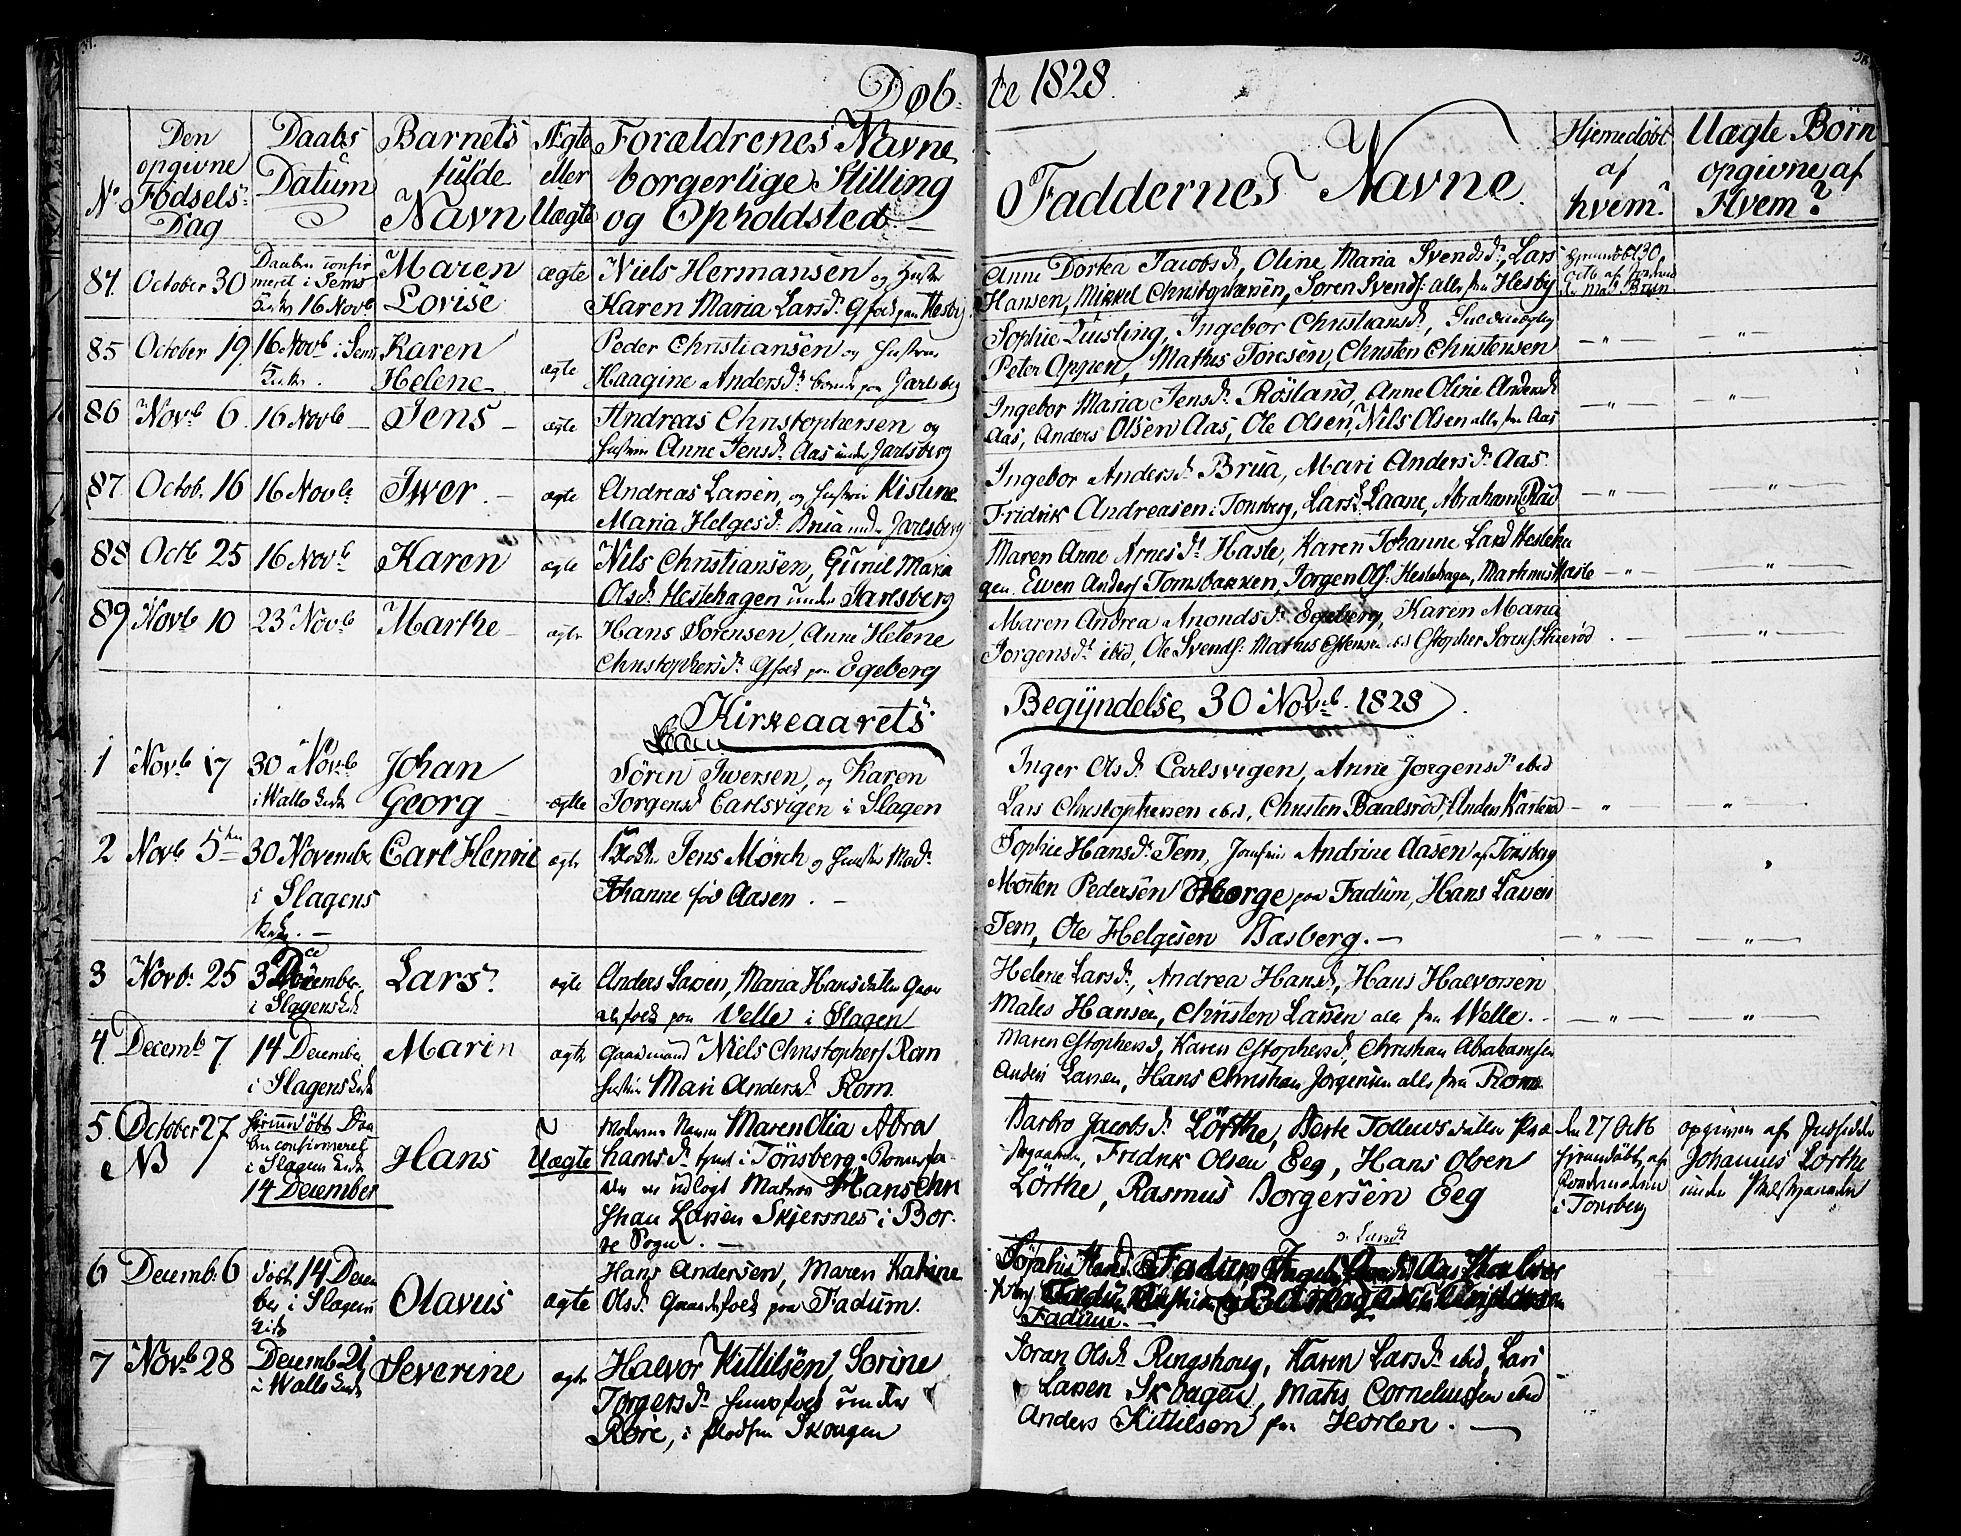 Døb- te 1828.
No
Den opgivne Fødsels Dag
Daabs Datum
Barnets fulde Navn
Ægte eller Uægte
Forældrenes Navne borgerlige Stilling og Opholdsted
Faddernes Navne.
Hjemedöbt af hvem?
Uægte Börn opgivne af Hvem?
84. October 30 Daaben confir Maren ægte Niels Hermansen og Hustru
meret i Sems 16 Novb Lovise Karen Maria Larsd. Gfolk paa Hesby
Anne Dorka Jacobsd, Oline Maria Svendsd, Lars
Hansen, Mikkel Christophersen, Soren Svends. alle fra Hesby
85 October 19. 16 Novb i Sem Karen ægte Peder Christiansen og Hustrue
Helene Haagine Andersd. paa Jarlsberg
Sophie Quisling, Ingebor Christiansd,
Peter Oppen, Mathis Toresen, Christen Christensen
86 Novb 6. 16 Novb Jens ægte Andreas Christophersen og
Hustrue Anne Jensd. Aas under Jarlsberg
Ingebor Maria Jensd. Rösland, Anne Oline Andersd
Aas, Anders Olsen Aas, Ole Olsen, Nils Olsen alle fra Aas
87 Octob. 16 16 Novb Iwer. ægte Andreas Larsen, og Hustrue Kistine
Maria Helgesd. Brua und. Jarlsberg
Ingebor Andersd. Brua, Mari Andersd. Aas.
Fridrik Andreasen i Tonsberg, Lars Laane, Abraham
88 Octb 25 16 Novb Karen ægte Nils Christiansen, Gunil Maria
Olsd. Hestehagen under Jarlsberg
Maren Anne Arnesd. Hasle, Karen Johanne Larsd Hesteha
gen. Ewen Anders Tomsbakken, Jorgen Ols. Hestehagen, Markus Hasle
89 Novb 10 23 Novb Marthe ægte Hans Sorensen, Anne Helene
Christophersd. Gfolk paa Egeberg
Maren Andrea Anondsd. Egeberg, Karen Maria
Jorgensd. ibid, Ole Svends. Mathis ibid
Kirkeaarets Begyndelse, 30 Novb. 1828
1 Novb 17 30 Novb Johan
i Wallø Kirke Georg ægte Sören Iwersen, og Karen
Jorgensd. Carlsvigen i Slagen
Inger Olsd. Carlsvigen, Anne Jorgensd. ibid
Lars Christophersen ibid, Christen Baalsröd,
2 Novb 5 30 November Carl Henric ægte Jens Mörch og Hustru Mad.
i Slagens Johanne fød Aasen.
Kirke.
Sophie Hansd. Tem, Jomfrue Andrine Aasen af Tönsberg
Morten Pedersen paa Fadum, Hans Larsen
Tem, Ole Helgesen Basberg.
3 Novb. 25 3 December Lars ægte Anders Larsen, Maria Hansdatter Gaar
i Slagens Kirke defolk paa Velle i Slagen
Helene Larsd., Andrea Hansd, Hans Halvorsen
Mates Hansen, Christen Larsen alle fra Welle.
4. Decemb 7. 14 December Marin ægte Gaardmand Niels Christophers Rom
i Slagens Kirke Hustru Mari Andersd. Rom.
Maren Cstophersd, Karen Cstophersd. Christian Abrahamsen
Anders Larsen, Hans Christian Jorgensen alle fra Rom
5. October 27 Hjemmdöbt Daa
NB ben confirmeret Hans Uægte Moderens Navn Maren Olia Abra
i Slagens Kirke hamsd. i Tönsberg
14 December er udlagt Matros Hans Chri
stian Larsen Skjersnes i Bor-
re Sogn.
Barbro Jacobsd. Lörthe, Berte
Fridrik Olsen Eeg, Hans Olsen
Lörthe, Rasmus Borgersen Eeg
den 27 Octb
hjemmdöbt af
i Tonsberg
opgiven af
Johannes Lorthe
under
6 Decemb. 6 döbt 14 Decem
ber i Slagens Olavus ægte Hans Andersen, Maren Katrine
Kirke Olsd. Gaardefolk paa Fadum.
Fadum.
7 Novb 28 Decemb 21 Severine ægte Halvor Kittilsen, Sorine
i Wallø Kirke Torgersd. Huusfolk under
Rore, i Skougen
Soran Olsd. Ringshoug, Karen Larsd. ibid, Lars
Larsen Skougen, Mates Corneliusen ibid
Anders Kittilsen fra Horten.